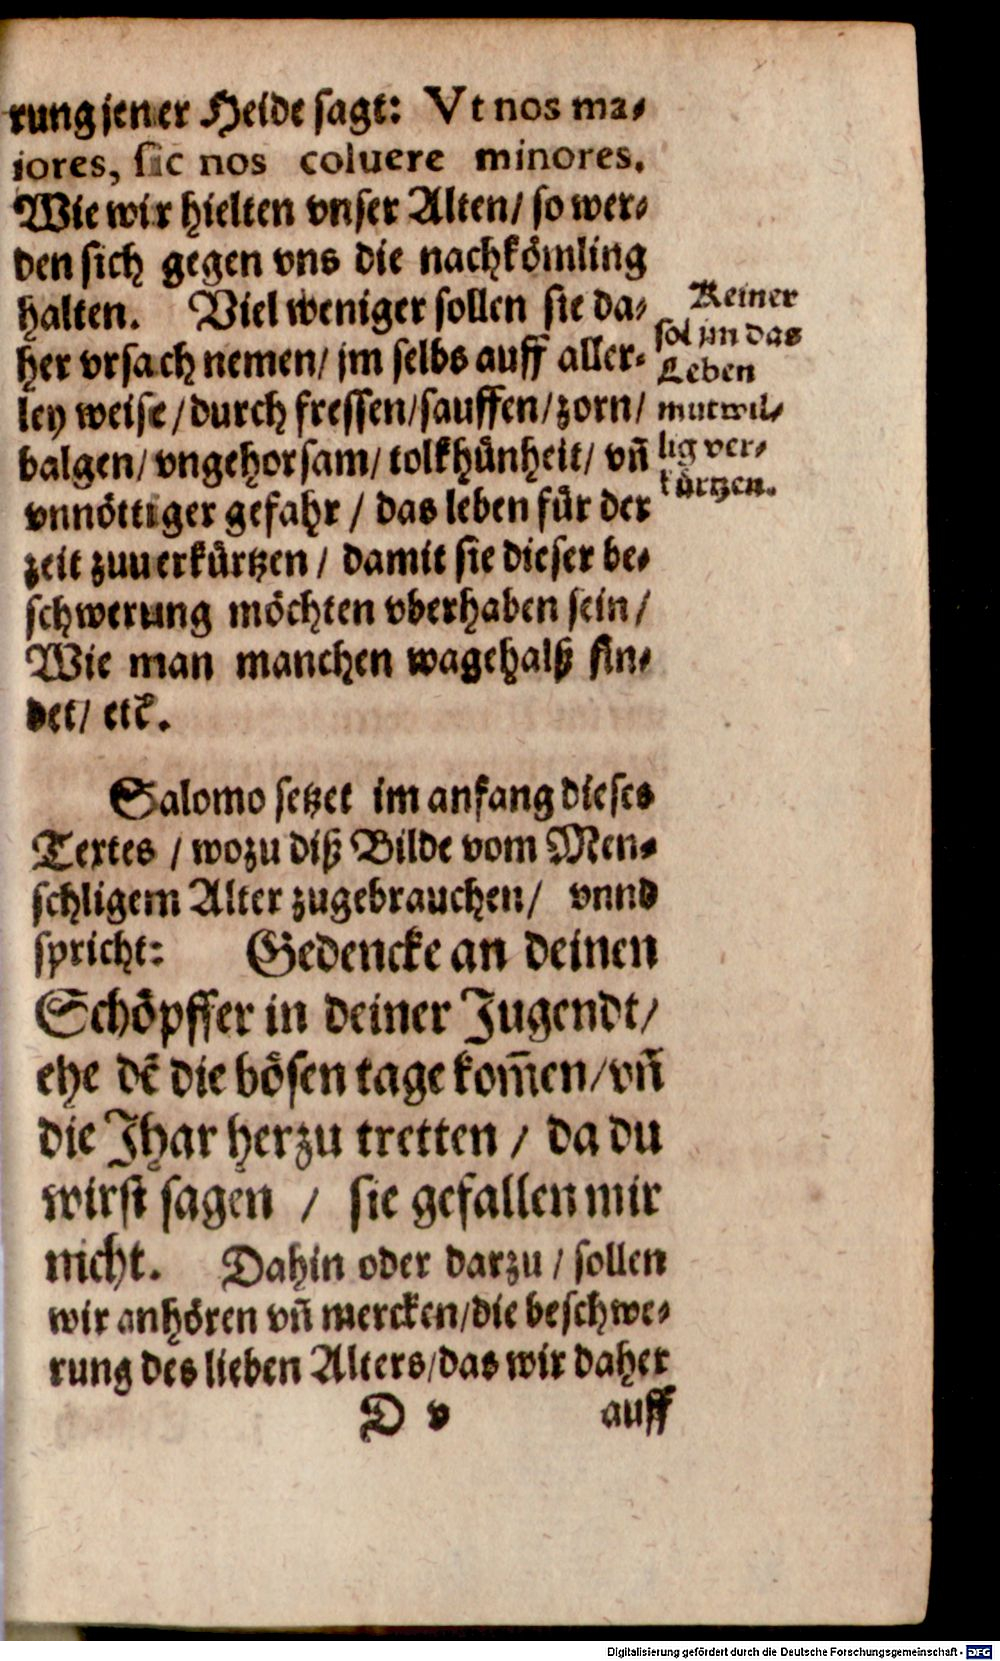 rung jener Heide sagt: Vt nos ma⸗
iores, sic nos coluere minores.
Wie wir hielten vnser Alten/ so wer⸗
den sich gegen vns die nachkömling
halten. Viel weniger sollen sie da⸗
her vrsach nemen/ jm selbs auff aller⸗
ley weise/durch fressen/sauffen/zorn/
balgen/vngehorsam/tolkhünheit/ vñ
vnnöttiger gefahr / das leben für der
zeit zuuerkürtzen / damit sie dieser be⸗
schwerung möchten vberhaben sein/
Wie man manchen wagehalß fin⸗
det/ etc̃.
Keiner
sol jm das
Leben
mutwil⸗
lig ver⸗
kürtzen.
Salomo setzet im anfang dieses
Textes / wozu diß Bilde vom Men⸗
schligem Alter zugebrauchen/ vnnd
spricht: Gedencke an deinen
Schöpffer in deiner Jugendt/
ehe dẽ die bösen tage kom̃en/vñ
die Jhar herzu tretten / da du
wirst sagen / sie gefallen mir
nicht. Dahin oder darzu / sollen
wir anhören vñ mercken/die beschwe⸗
rung des lieben Alters/das wir daher
D v auff
Digitalisierung gefördert durch die Deutsche Forschungsgemeinschaft - DFG